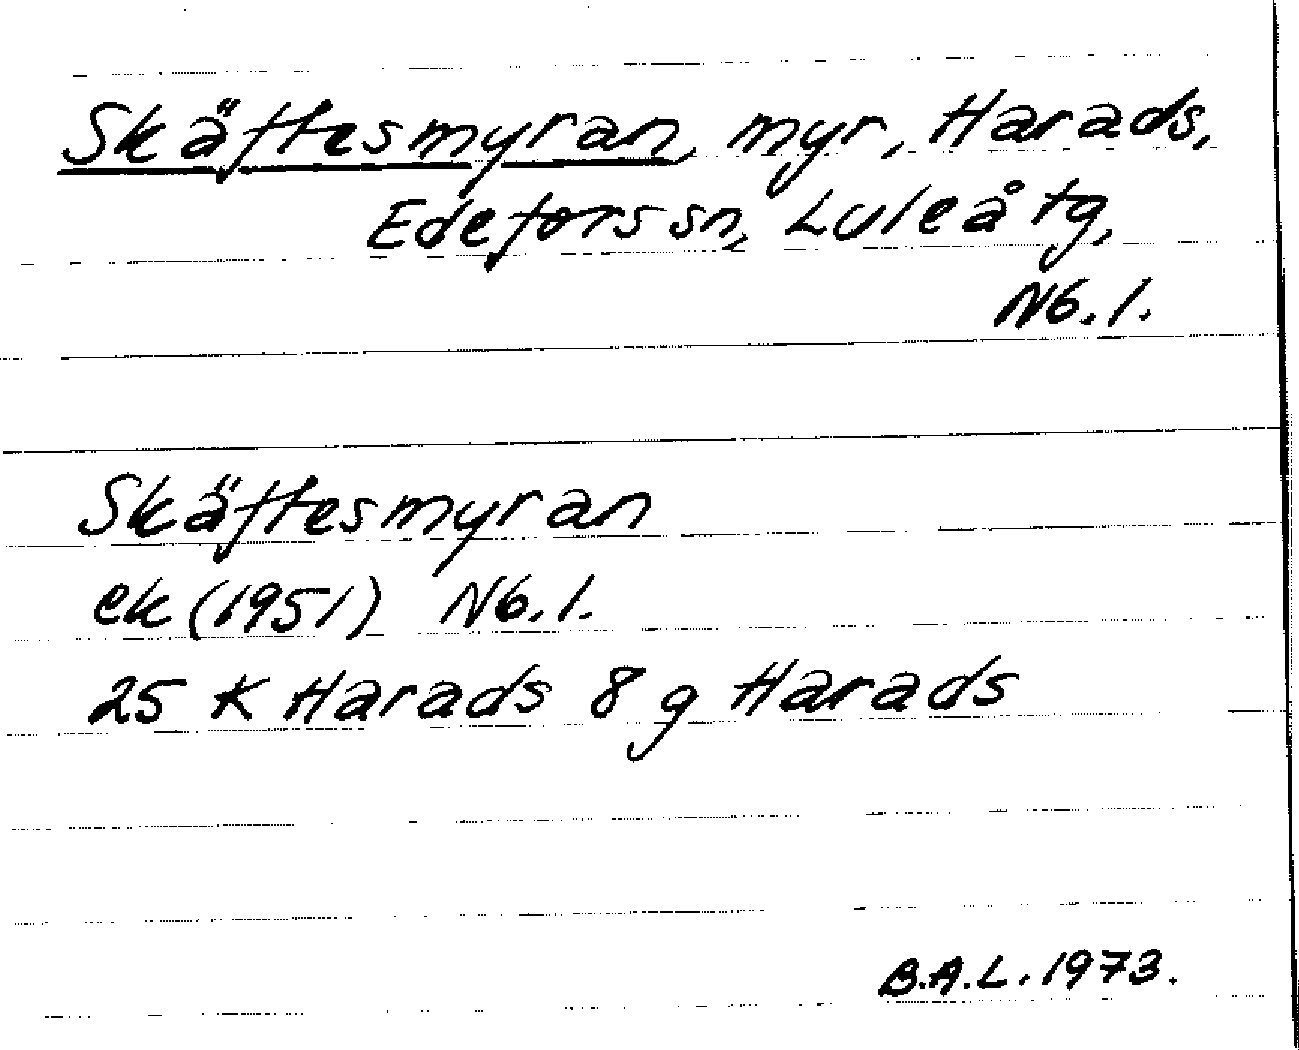 Skäftesmyran, myr, Harads,
Edefors sn, Luleå tg,
Nb. l.
Skäftesmyran
ek (1951) Nb. l.
25 K Harads 8 g Harads
B.A.L. 1973.